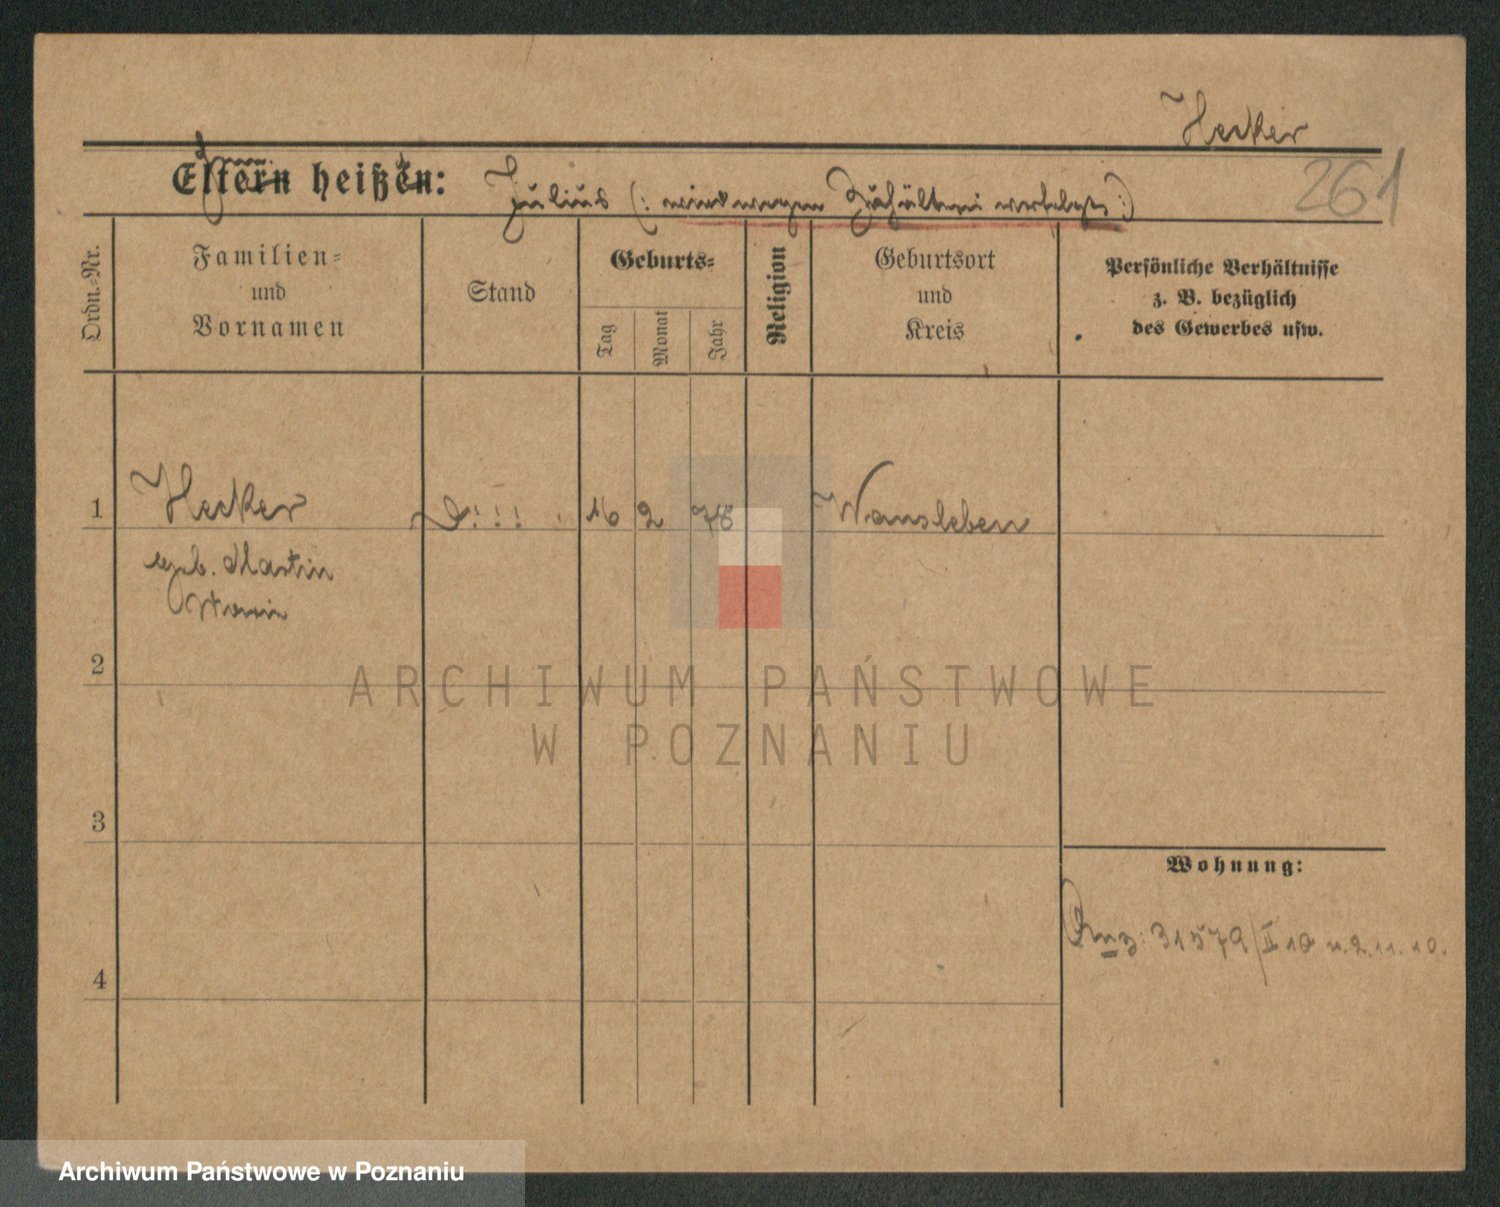 Hecker
261
Eltern heißen: Julius (: wird wegen Zuhälterei verfolgt :)
Ordn.-Nr.
Familien-
und
Vornamen
Stand
Geburts-
Tag
Monat
Jahr
Religion
Geburtsort
und
Kreis
Persönliche Verhältnisse
z. B. bezüglich
des Gewerbes usw.
1 Hecker D!!! 16 2 78 Wansleben
geb. Martin
2
ARCHIWUM PAŃSTWOWE
W POZNANIU
3
Wohnung:
31579/II 10 v. 2.11.10.
4
Archiwum Państwowe w Poznaniu